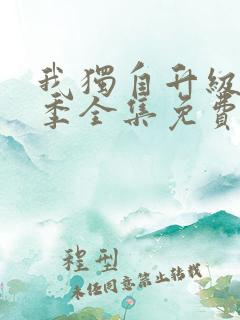 我獨自升級
季全集免費
程型
未经同意禁止转载